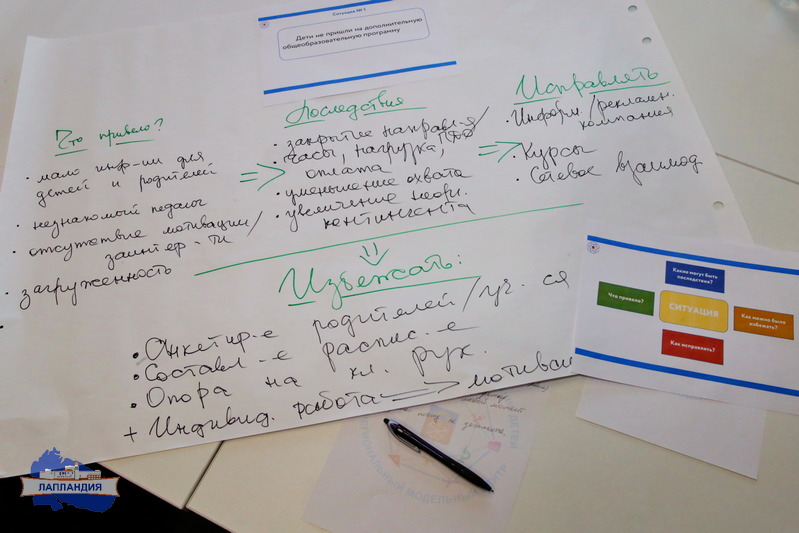 Ситуация № 5
Дети не пришли на дополнительную
общеобразовательную программу
Что привело?
• мало инф-ии для
детей и родителей
• незнакомый педагог
• отсутствие мотивации/
заинтер-ти
• загруженность
Последствия
• закрытие направл-я/
ПФДО
• часы, нагрузка,
оплата
• уменьшение охвата
• увеличение
контингента
Исправлять
• Информ./рекламн.
компания
• Курсы
• Сетевое взаимод
Избежать:
• Анкетир-е родителей/уч-ся
• Составл-е распис-е
• Опора на кл. рук.
+ Индивид. работа мотивац
Какие могут быть
последствия?
Что привело?
СИТУАЦИЯ
Как можно было
избежать?
Как исправлять?
ЛАПЛАНДИЯ